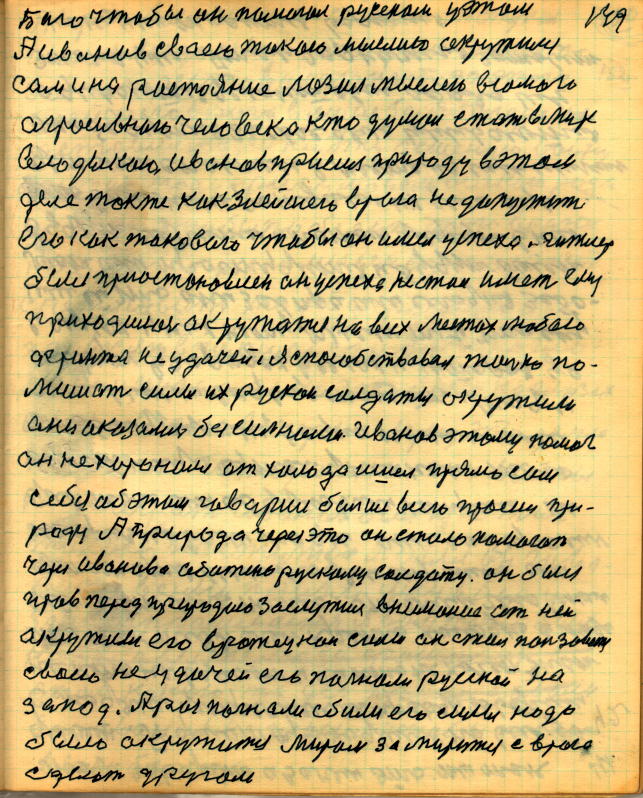 Бога чтобы он помогал русским у этом 149
А иванов сваею такою мыслию окружил
сам и на растояние лазил мыслею всамого
агросивного человека кто думал стать мир
Владыкаю, иванов прасил природу в этом
деле также как злейшего врага не допустить
его как такового чтобы он имел успеха. гитлер
был приостановлен он успеха не стал имет ему
приходилос окружатся на всех местах любого
фринта не удачей. я способствовал только по-
мишат силы их руские салдаты окружили
ани оказалис бессилными. Иванов этому помог
он не хоронился от холода ишел прямо сам
себе об этом гаварил болше всего просил при-
роду А природа через это он стала помогат
через иванова обижено рускому салдату. он был
прав перед природаю заслужил внимание от ней
акружил его вражеския силы он стал ползоват
сваею не удачей его погнали руской на
запад. А раз погнали сбили его силы надо
было окружится миром замирится с врага
сделат другом